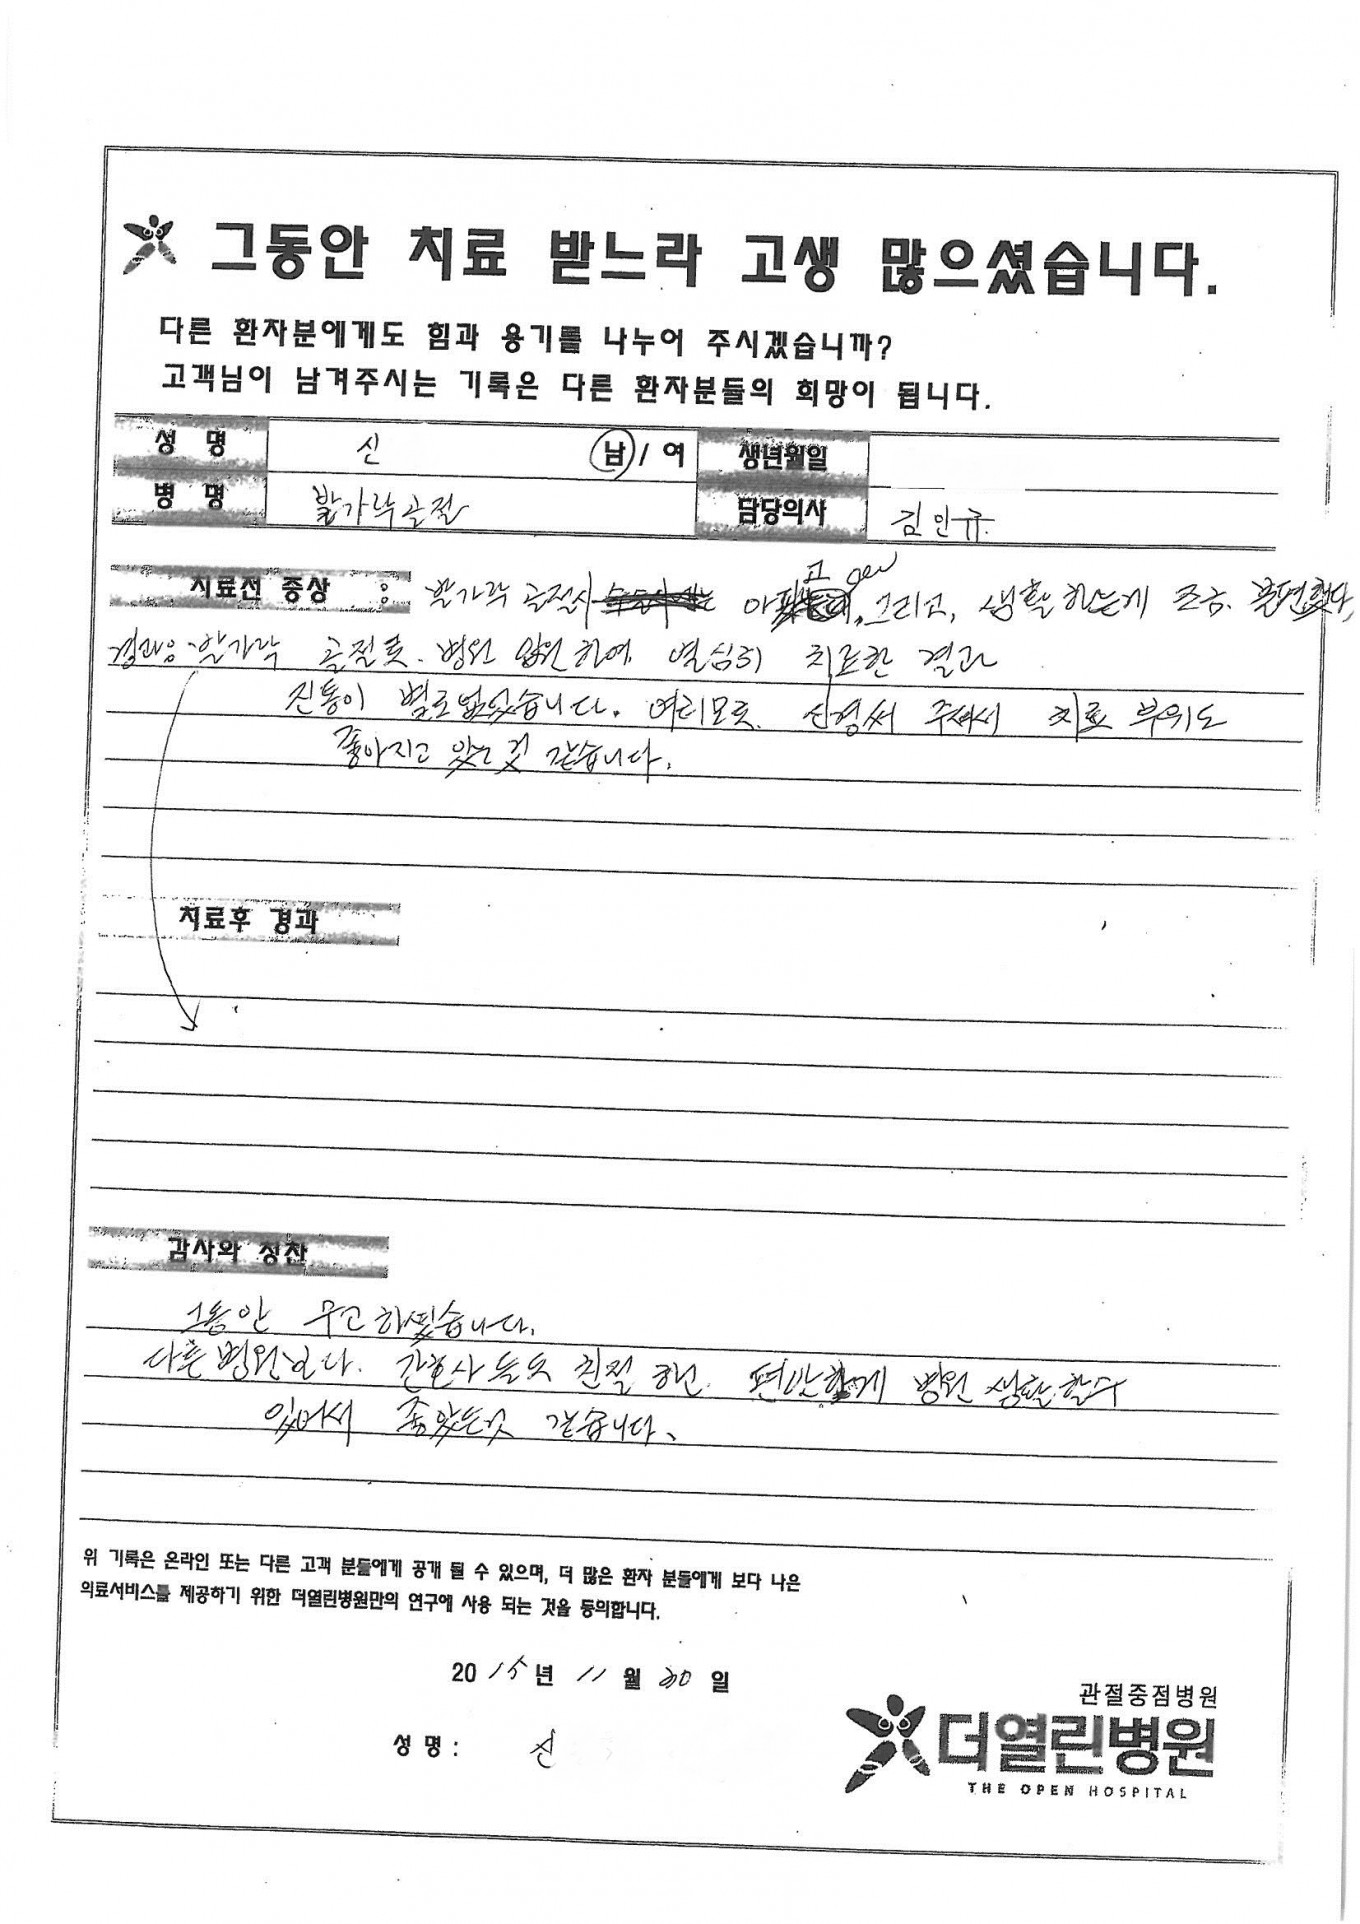 그동안 치료 받느라 고생 많으셨습니다.
다른 환자분에게도 힘과 용기를 나누어 주시겠습니까?
고객님이 남겨주시는 기록은 다른 환자분들의 희망이 됩니다.
성 명 신 남 / 여 생년월일
병 명 발가락골절 담당의사 김민규
치료전 증상 : 발가락 골절시 아프고, 그리고, 생활하는게 조금 불편했다,
발가락 골절로 병원 입원하여 열심히 치료한 결과
진통이 별로없었습니다. 여러모로 신경써 주셔서 치료 부위도
좋아지고 있는것 같습니다.
치료후 경과
감사와 칭찬
그동안 수고하셨습니다.
다른병원보다. 간호사들도 친절하고 편안하게 병원 생활할수
있어서 좋았는것 같습니다.
위 기록은 온라인 또는 다른 고객 분들에게 공개 될 수 있으며, 더 많은 환자 분들에게 보다 나은
의료서비스를 제공하기 위한 더열린병원만의 연구에 사용 되는 것을 동의합니다.
2015년 11월 30일
성 명 : 신
관절중점병원
더열린병원
THE OPEN HOSPITAL